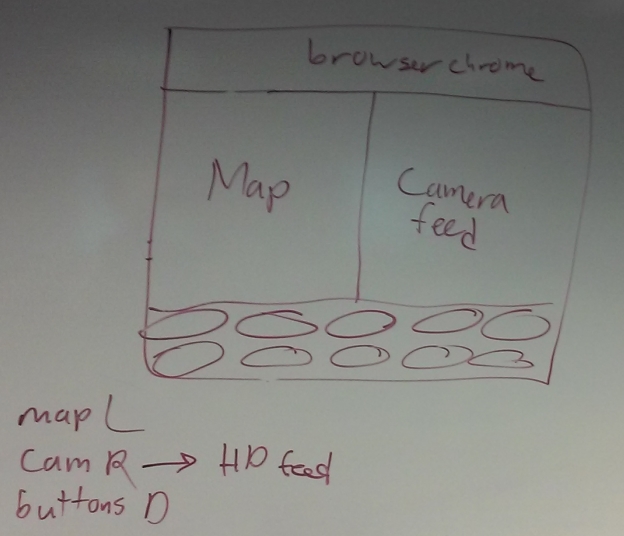 browser chrome
Map
Camera
feed
map L
Cam R → HD feed
buttons D